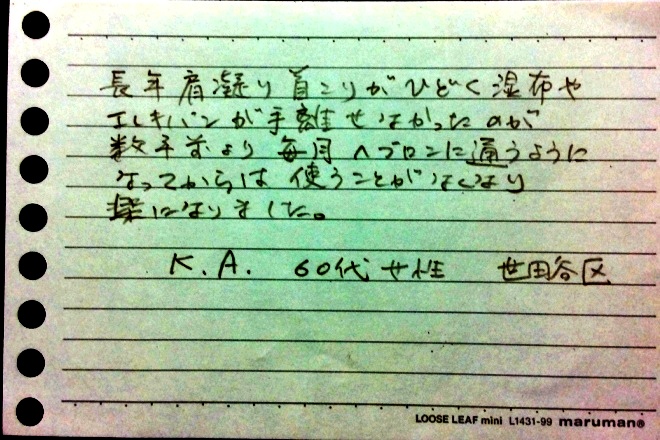 長年肩凝り首こりがひどく湿布や
エレキバンが手離せなかったのが
数年前より毎月ヘブロンに通うように
なってからは使うことがなくなり
楽になりました。
K.A. 60代女性 世田谷区
LOOSE LEAF mini L1431-99 maruman®